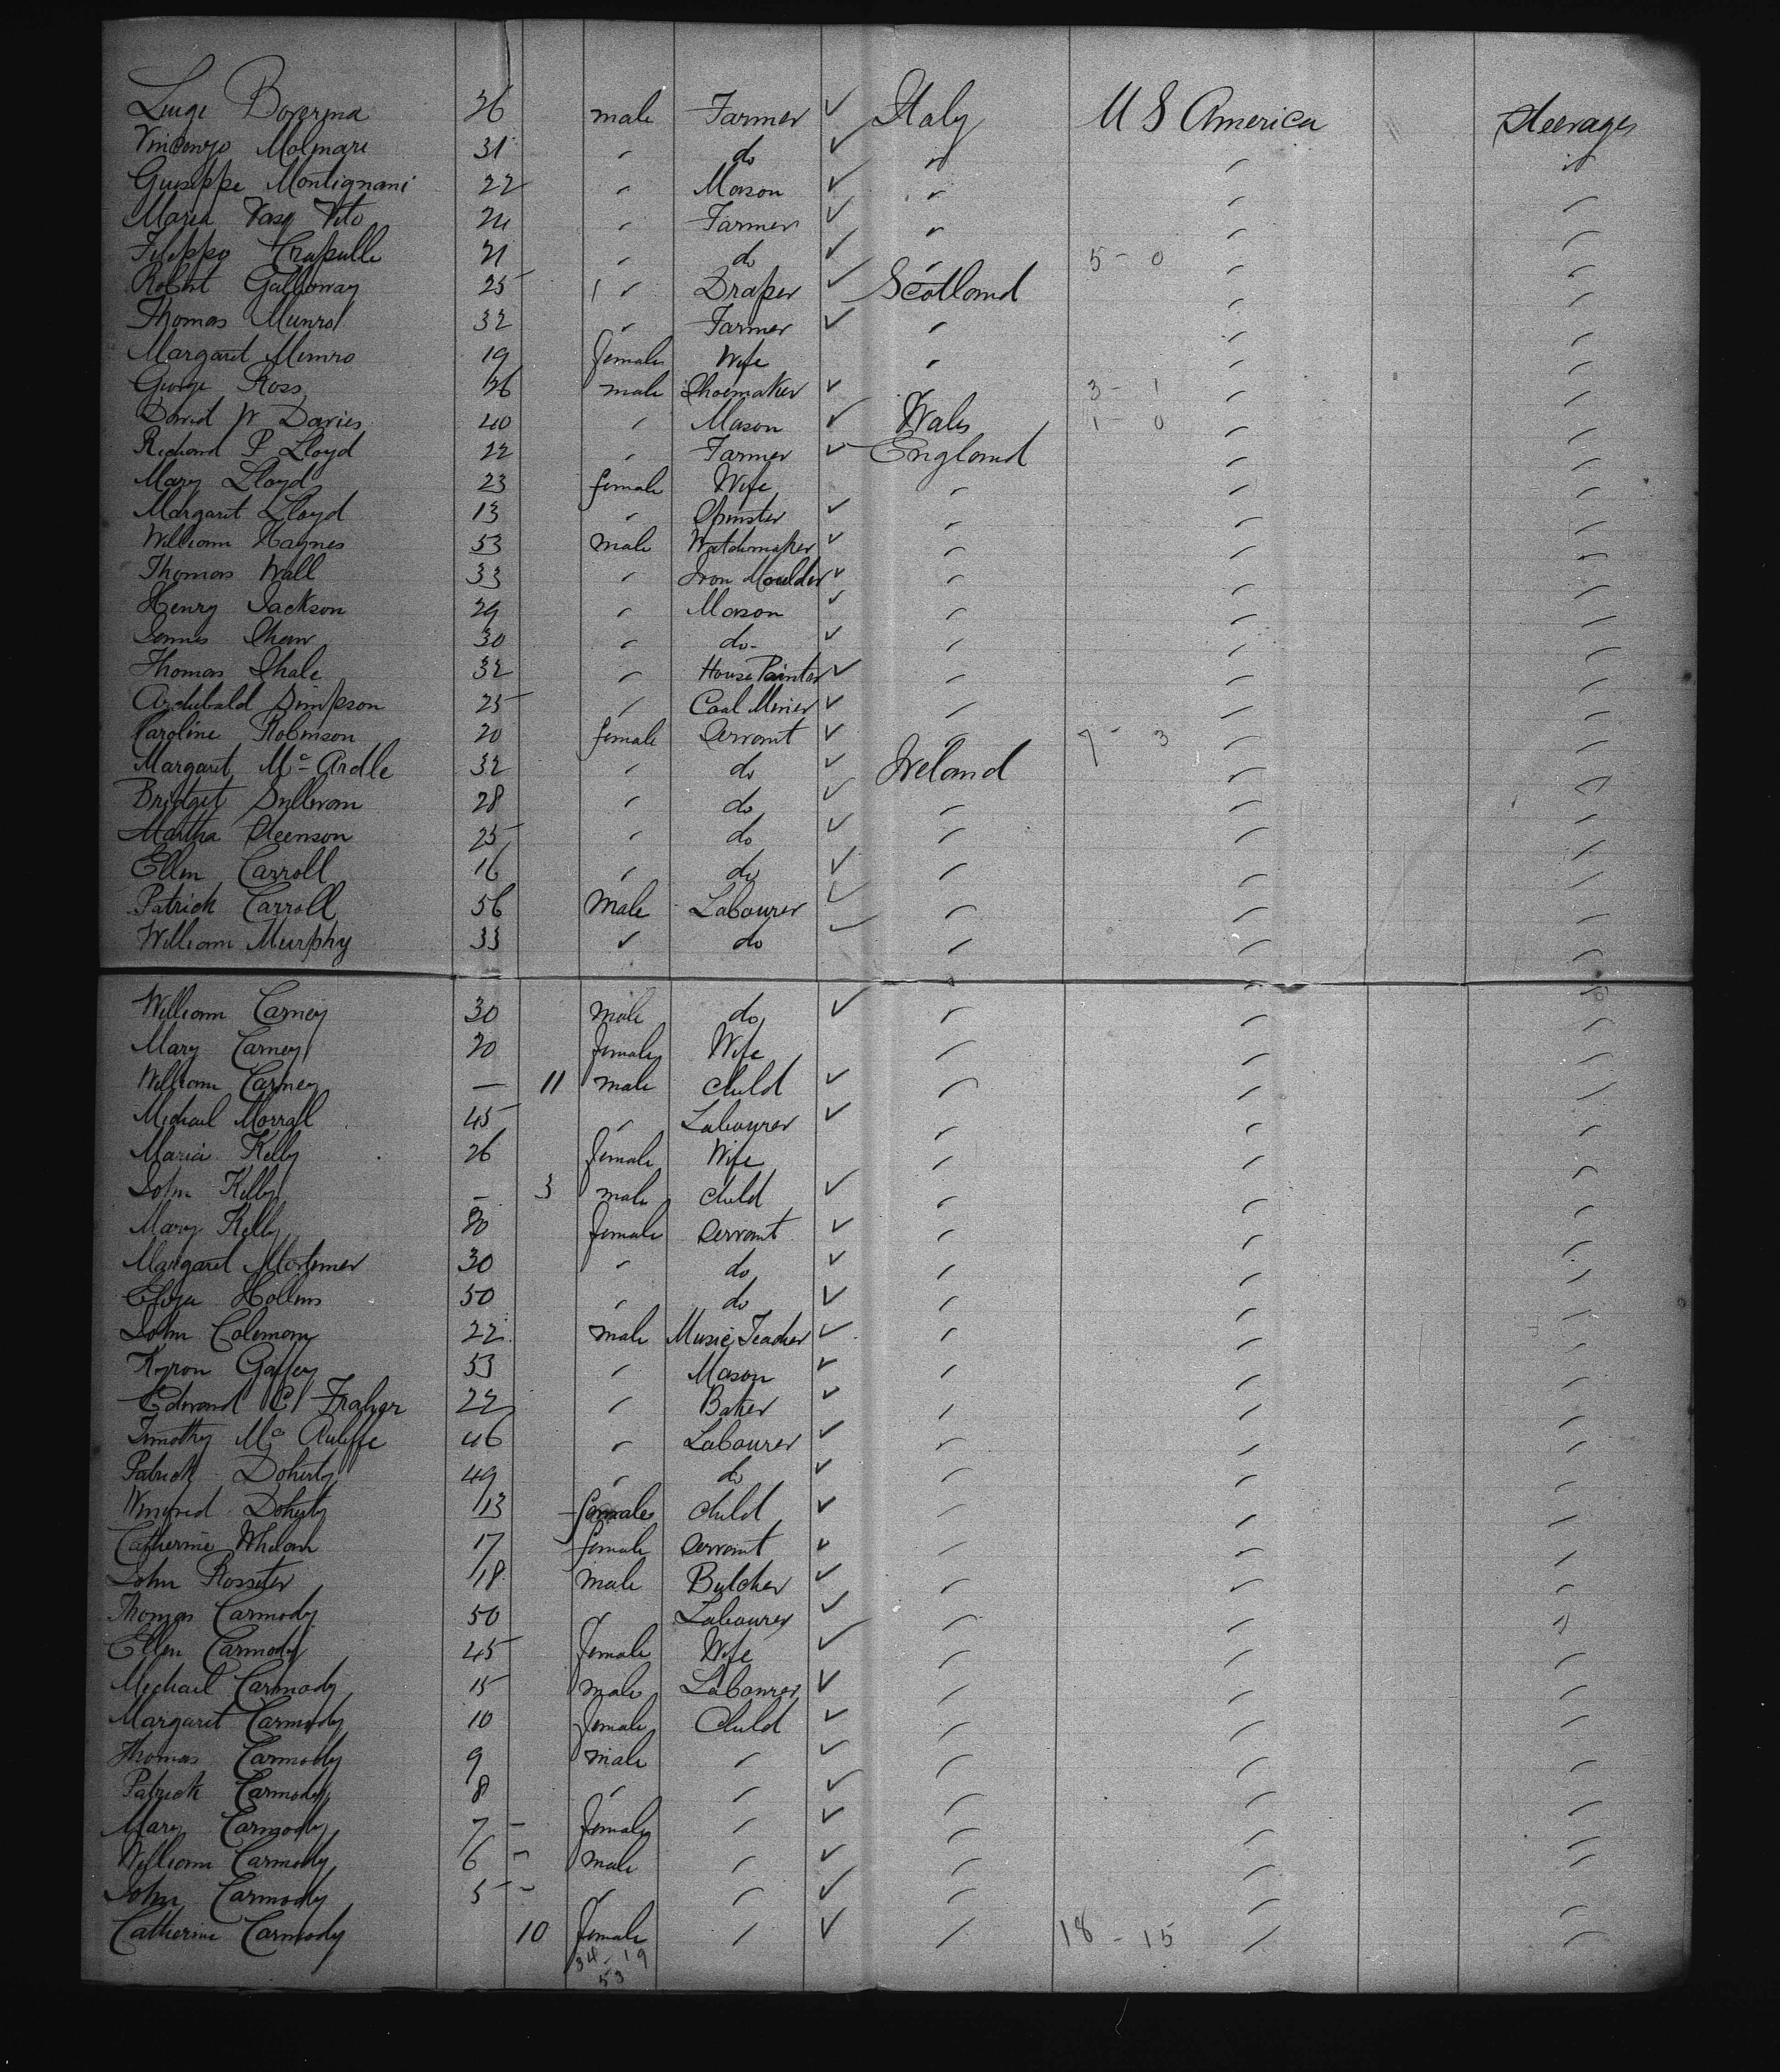 Luigi Boverma 26 male Farmer ✓ Italy U S America Steerage
Vincenzo Molinare 31 " do ✓ " " "
Guiseppe Montignani 22 " Mason ✓ " " "
Maria Vasq Vito 24 " Farmer ✓ " " "
Fileppo Crapulle 21 " do ✓ " 5 - 0 " "
Robert Galloway 25 " Draper ✓ Scotland " "
Thomas Munro 32 " Farmer ✓ " " "
Margaret Munro 19 female Wife " " "
George Ross 26 male Shoemaker ✓ 3 - 1 " "
David W Davies 40 " Mason ✓ Wales 1 - 0 " "
Richard P Lloyd 22 " Farmer ✓ England " "
Mary Lloyd 23 female Wife " " "
Margaret Lloyd 13 " Spinster ✓ " " "
William Haynes 53 male Watchmaker ✓ " " "
Thomas Wall 33 " Iron Moulder ✓ " " "
Henry Jackson 29 " Mason ✓ " " "
James Shaw 30 " do - ✓ " " "
Thomas Shale 32 " House Painter ✓ " " "
Archibald Simpson 25 " Coal Miner ✓ " " "
Caroline Robinson 20 female Servant ✓ " 7 - 3 " "
Margaret Mc Ardle 32 " do ✓ Ireland " "
Bridget Sullivan 28 " do ✓ " " "
Martha Steenson 25 " do ✓ " " "
Ellen Carroll 16 " do ✓ " " "
Patrick Carroll 56 Male Labourer ✓ " " "
William Murphy 33 " do ✓ " " "
William Carney 30 male do ✓ " " "
Mary Carney 20 female Wife " " "
William Carney — 11 male child ✓ " " "
Michael Morrall 45 " Labourer ✓ " " "
Maria Kelly 26 female Wife " " "
John Kelly - 3 male child ✓ " " "
Mary Kelly 20 female Servant ✓ " " "
Margaret Mortimer 30 " do ✓ " " "
Eliza Hollins 50 " do ✓ " " "
John Coleman 22 male Music Teacher ✓ " " "
Kyron Gaffey 53 " Mason ✓ " " "
Edward C Fraher 22 " Baker ✓ " " "
Timothy Mc Auliffe 46 " Labourer ✓ " " "
Patrick Doherty 49 " do ✓ " " "
Winifred Doherty 13 female child ✓ " " "
Catherine Whelan 17 female Servant ✓ " " "
John Rossiter 18 male Butcher ✓ " " "
Thomas Carmody 50 " Labourer ✓ " " "
Ellen Carmody 45 female Wife ✓ " " "
Michael Carmody 15 male Labourer ✓ " " "
Margaret Carmody 10 female Child ✓ " " "
Thomas Carmody 9 male " ✓ " " "
Patrick Carmody 8 " " ✓ " " "
Mary Carmody 7 - female " ✓ " " "
William Carmody 6 - male " ✓ " " "
John Carmody 5 - " " ✓ " " "
Catherine Carmody 10 female " ✓ " 18 - 15 " "
34 - 19
53